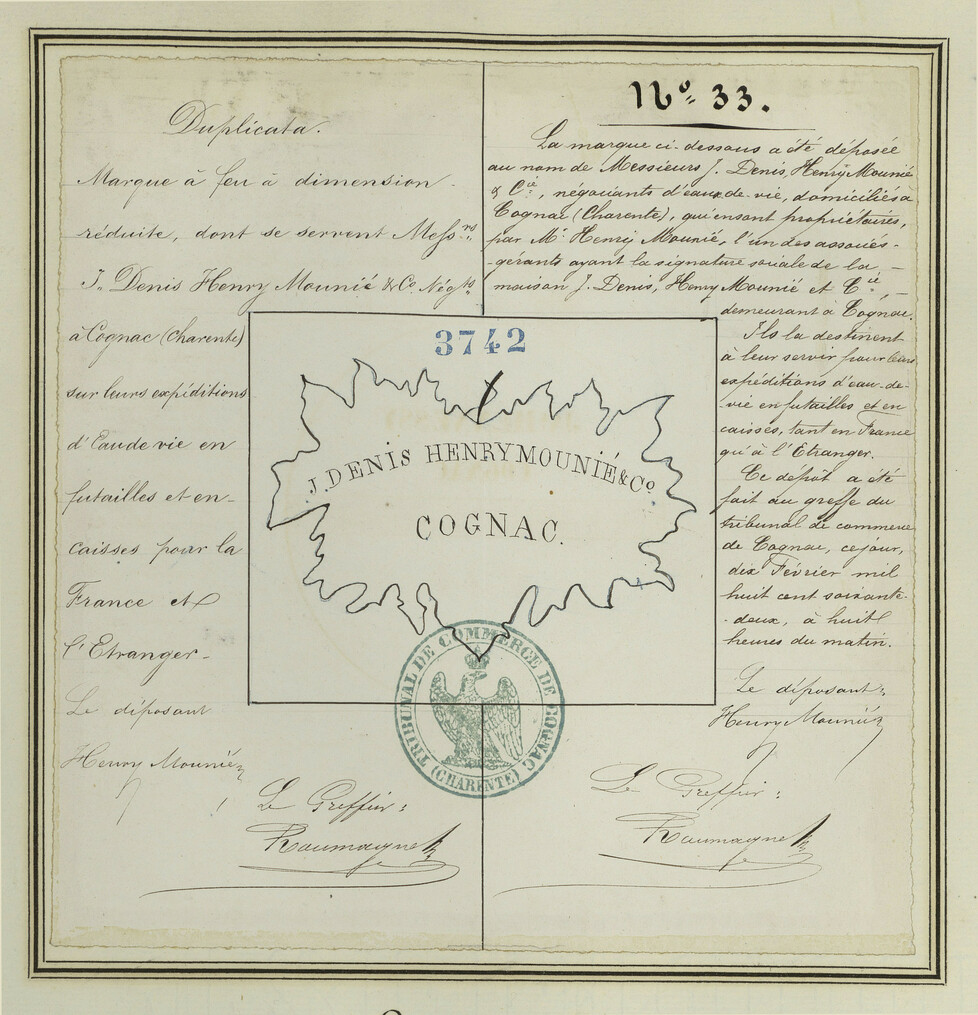 Duplicata.
Marque à feu à dimension
réduite, dont se servent Messrs
J. Denis Henry Mounié & Co. Négts
à Cognac (Charente)
sur leurs expéditions
d'Eau de vie en
futailles et en-
caisses pour la
France et
l'Etranger-
Le déposant
Henry Mounié
Le Greffier:
Roumagne
No. 33.
La marque ci-dessous a été déposée
au nom de Messieurs J. Denis, Henry Mounié
& Cie, négociants d'eaux-de-vie, domiciliés à
Cognac (Charente), qui en sont propriétaires,
par Mr. Henry Mounié, l'un des associés-
-gérants ayant la signature sociale de la -
maison J. Denis, Henry Mounié et Cie, -
demeurant à Cognac.
Ils la destinent
à leur servir pour leurs
expéditions d'eau-de-
-vie en futailles et en
caisses, tant en France
qu'à l'Etranger.
Ce dépôt a été
fait au greffe du
tribunal de commerce
de Cognac, ce jour,
dix Février mil
huit cent soixante-
-deux, à huit
heures du matin.
Le déposant:
Henry Mounié
Le Greffier:
Roumagne
3742
J. DENIS HENRY MOUNIÉ & Co.
COGNAC.
TRIBUNAL DE COMMERCE DE COGNAC
(CHARENTE)